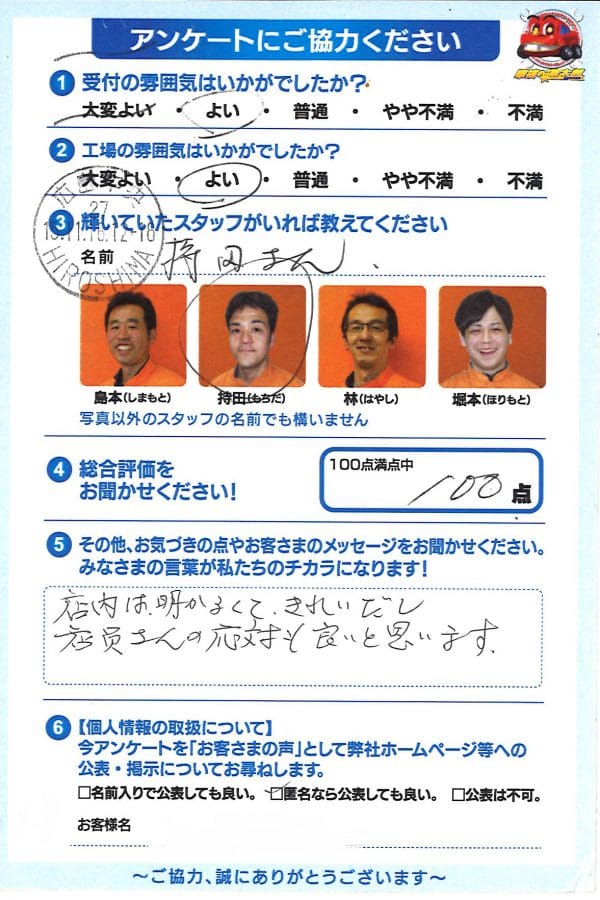 アンケートにご協力ください
1 受付の雰囲気はいかがでしたか?
大変よい ・ よい ・ 普通 ・ やや不満 ・ 不満
2 工場の雰囲気はいかがでしたか?
大変よい ・ よい ・ 普通 ・ やや不満 ・ 不満
27
HIROSHIMA
3 輝いていたスタッフがいれば教えてください
名前 持田さん.
島本(しまもと) 持田(もちだ) 林(はやし) 堀本(ほりもと)
写真以外のスタッフの名前でも構いません
4 総合評価を
お聞かせください!
100点満点中
100 点
5 その他、お気づきの点やお客さまのメッセージをお聞かせください。
みなさまの言葉が私たちのチカラになります!
店内は、明かるくて、きれいだし
店員さんの応対も良いと思います.
6 【個人情報の取扱について】
今アンケートを「お客さまの声」として弊社ホームページ等への
公表・掲示についてお尋ねします。
□名前入りで公表しても良い。 ☑匿名なら公表しても良い。 □公表は不可。
お客様名
〜ご協力、誠にありがとうございます〜